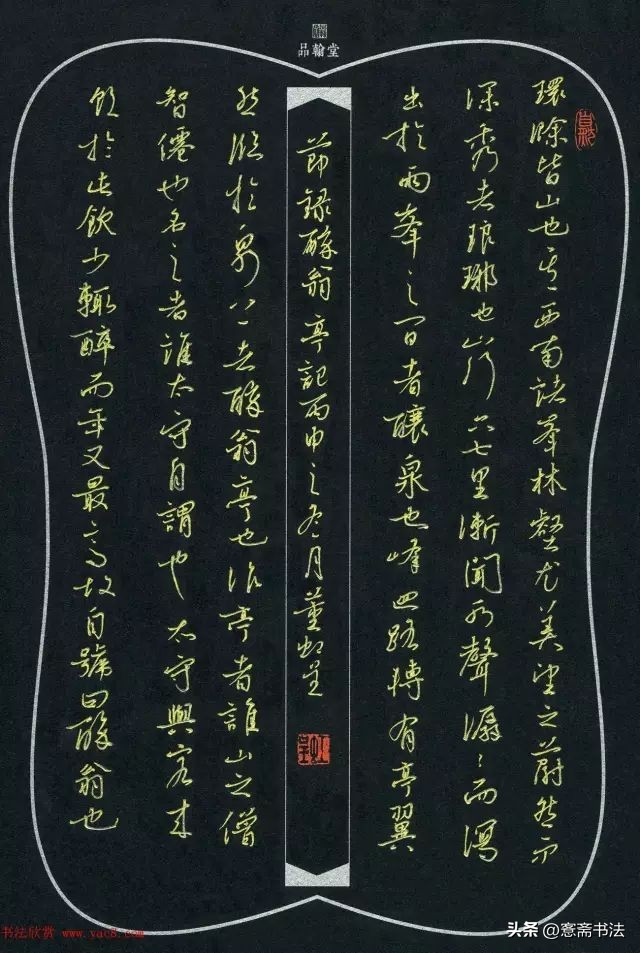 品翰堂
環滁皆山也其西南諸峯林壑尤美望之蔚然而
深秀者琅琊也山行六七里漸聞水聲潺〻而瀉
出於兩峯之間者釀泉也峰回路轉有亭翼
節録醉翁亭記丙申之冬月董虹呈
然臨於泉上者醉翁亭也作亭者誰山之僧
智僊也名之者誰太守自謂也太守與客来
飲於此飲少輒醉而年又最高故自號曰醉翁也
书法欣赏 www.yac8.com
头条 @惷斋书法